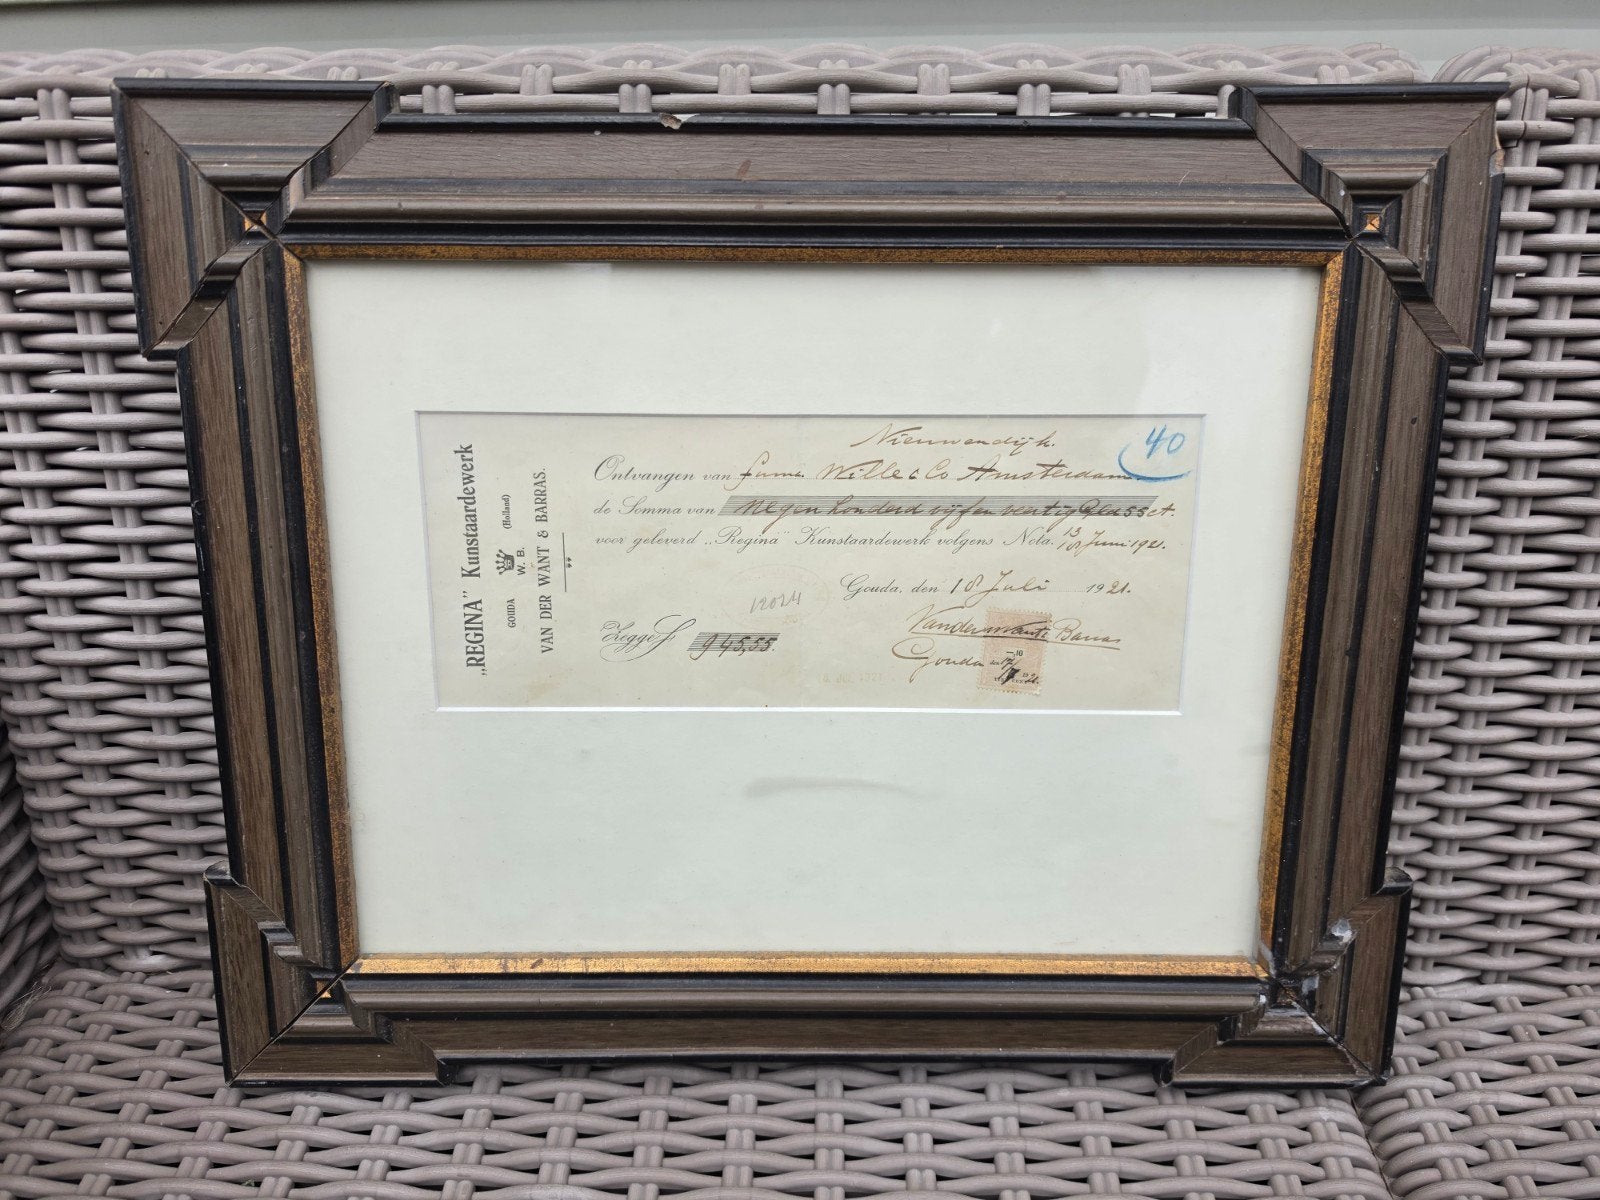 „REGINA” Kunstaardewerk
GOUDA W. B. (Holland)
VAN DER WANT & BARRAS.
Nieuwendijk.
40
Ontvangen van firma Wille & Co Amsterdam
de Somma van Negen honderd vijf en veertig Gld 55 ct.
voor geleverd „Regina” Kunstaardewerk volgens Nota 13/18 Juni 1921.
Gouda, den 18 Juli 1921.
12024
Zegge f 945,55.
Van der Want & Barras
Gouda
10